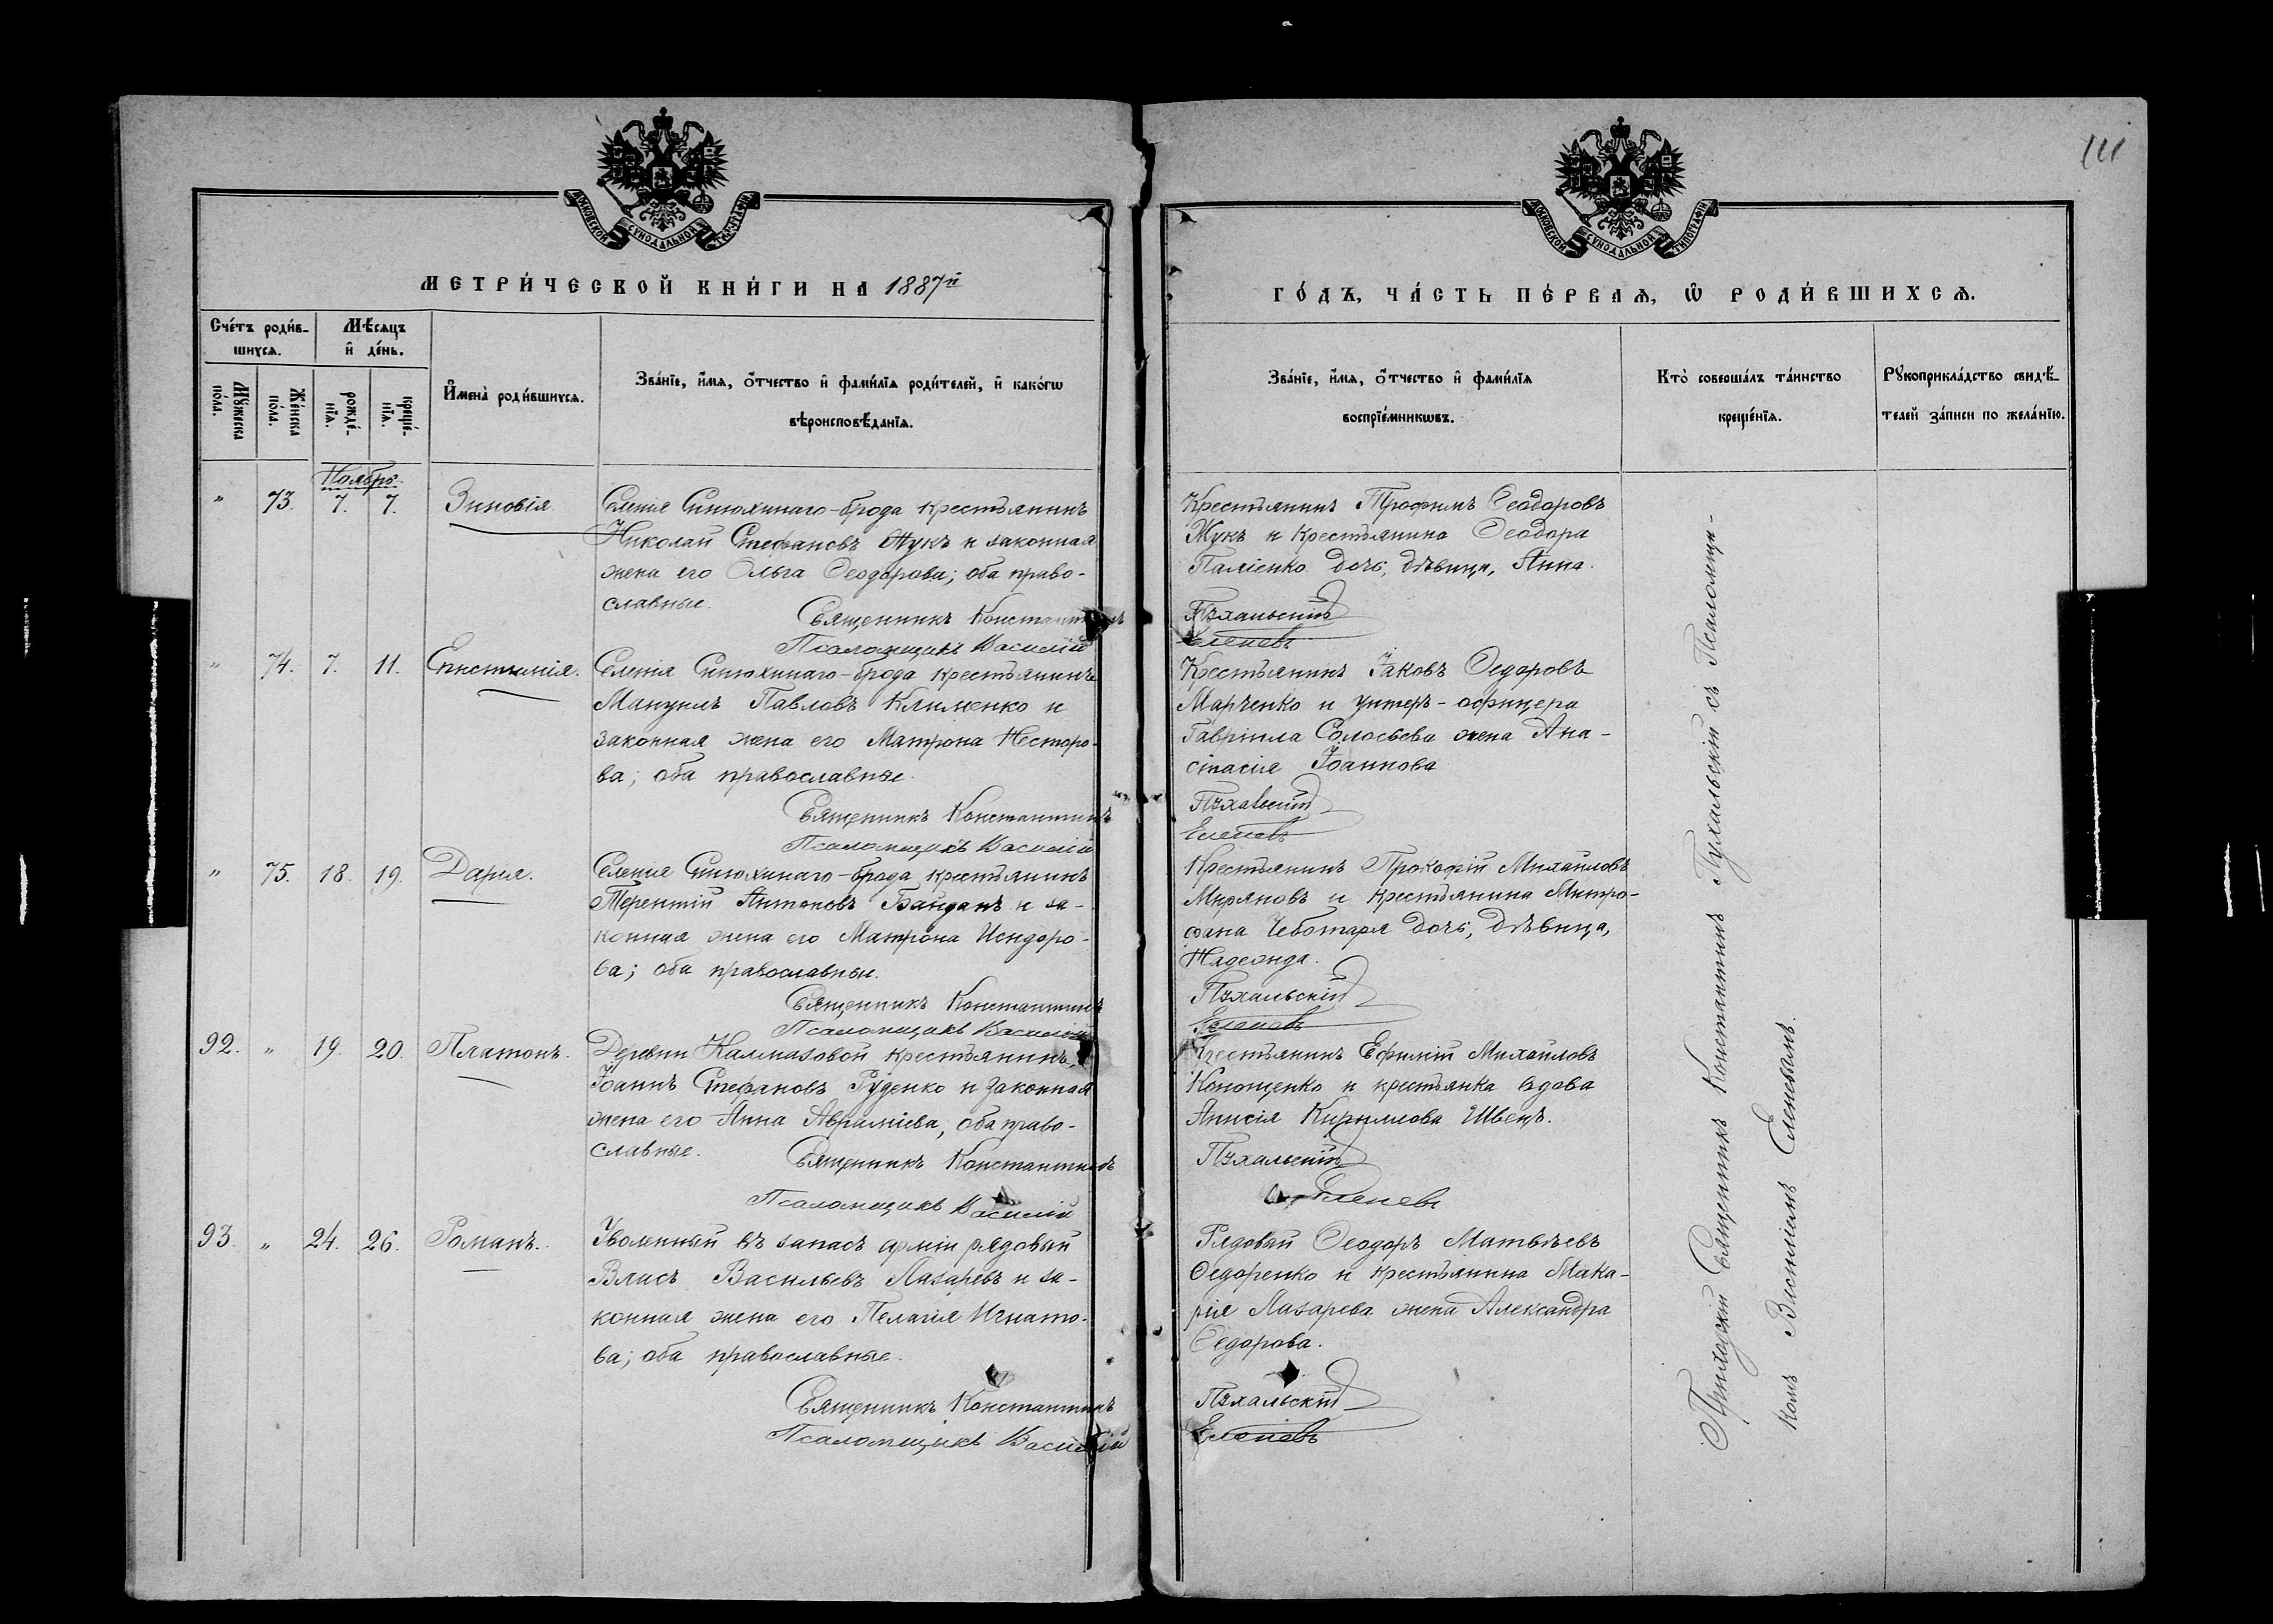 111
МОСКОВСКОЙ СѴНОДАЛЬНОЙ ТИПОГРАФІИ
МОСКОВСКОЙ СѴНОДАЛЬНОЙ ТИПОГРАФІИ
МЕТРИ́ЧЕСКОЙ КНИ́ГИ НА 1887й
ГО́ДЪ, ЧА́СТЬ ПЕ́РВАѦ, Ѿ РОДИ́ВШИХСѦ.
Сче́тъ роди́в-
шихсѧ.
Мѣ́сѧцъ
и҆ де́нь.
Мꙋ́жеска
по́ла.
Же́нска
по́ла.
рожде́-
нїѧ.
креще́-
нїѧ.
И҆мена̀ роди́вшихсѧ.
Зва́нїе, и҆́мѧ, ѻ҆́тчество и҆ фами́лїѧ роди́телей, и҆ како́гѡ
вѣроисповѣ́данїѧ.
Зва́нїе, и҆́мѧ, ѻ҆́тчество и҆ фами́лїѧ
воспрїе́мникѡвъ.
Кто̀ соверша́лъ та́инство
креще́нїѧ.
Рꙋкоприкла́дство свидѣ́-
телей за́писи по жела́нїю.
Ноябрь.
" 73. 7. 7. Зиновія.
Селенія Синюхинаго-брода крестьянинъ
Николай Стефановъ Жукъ и законная
жена его Ольга Ѳеодорова; оба право-
славные.
Священникъ Константинъ
Псаломщикъ Василій
Крестьянинъ Трофимъ Ѳеодоровъ
Жукъ и крестьянина Ѳеодора
Паліенко дочь, дѣвица, Анна.
Пухальскій
Еленевъ
" 74. 7. 11. Епистимія.
Селенія Синюхинаго-брода крестьянинъ
Мануилъ Павловъ Клименко и
законная жена его Матрона Несторо-
ва; оба православные.
Священникъ Константинъ
Псаломщикъ Василій
Крестьянинъ Іаковъ Ѳедоровъ
Марченко и унтеръ-офицера
Гавріила Соловьева жена Ана-
стасія Іоаннова
Пухальскій
Еленевъ
" 75. 18. 19. Дарія.
Селенія Синюхинаго-брода крестьянинъ
Терентій Антоновъ Байданъ и за-
конная жена его Матрона Исидоро-
ва; оба православные.
Священникъ Константинъ
Псаломщикъ Василій
Крестьянинъ Прокофій Михайловъ
Миряновъ и крестьянина Митро-
фана Чеботаря дочь, дѣвица,
Надежда.
Пухальскій
Еленевъ
92. " 19. 20. Платонъ.
Деревни Калмазовой крестьянинъ
Іоаннъ Стефановъ Руденко и законная
жена его Анна Авраміева, оба право-
славные.
Священникъ Константинъ
Псаломщикъ Василій
Крестьянинъ Ефимій Михайловъ
Конощенко и крестьянка вдова
Анисія Кириллова Швецъ.
Пухальскій
Еленевъ
93. " 24. 26. Романъ.
Уволенный въ запасъ арміи рядовый
Власъ Васильевъ Лазаревъ и за-
конная жена его Пелагія Игнато-
ва; оба православные.
Священникъ Константинъ
Псаломщикъ Василій
Рядовый Ѳеодоръ Матвѣевъ
Ѳедоренко и крестьянина Мака-
рія Лазарева жена Александра
Ѳедорова.
Пухальскій
Еленевъ
Приходскій священникъ Константинъ Пухальскій съ Псаломщи-
комъ Василіемъ Еленевымъ.